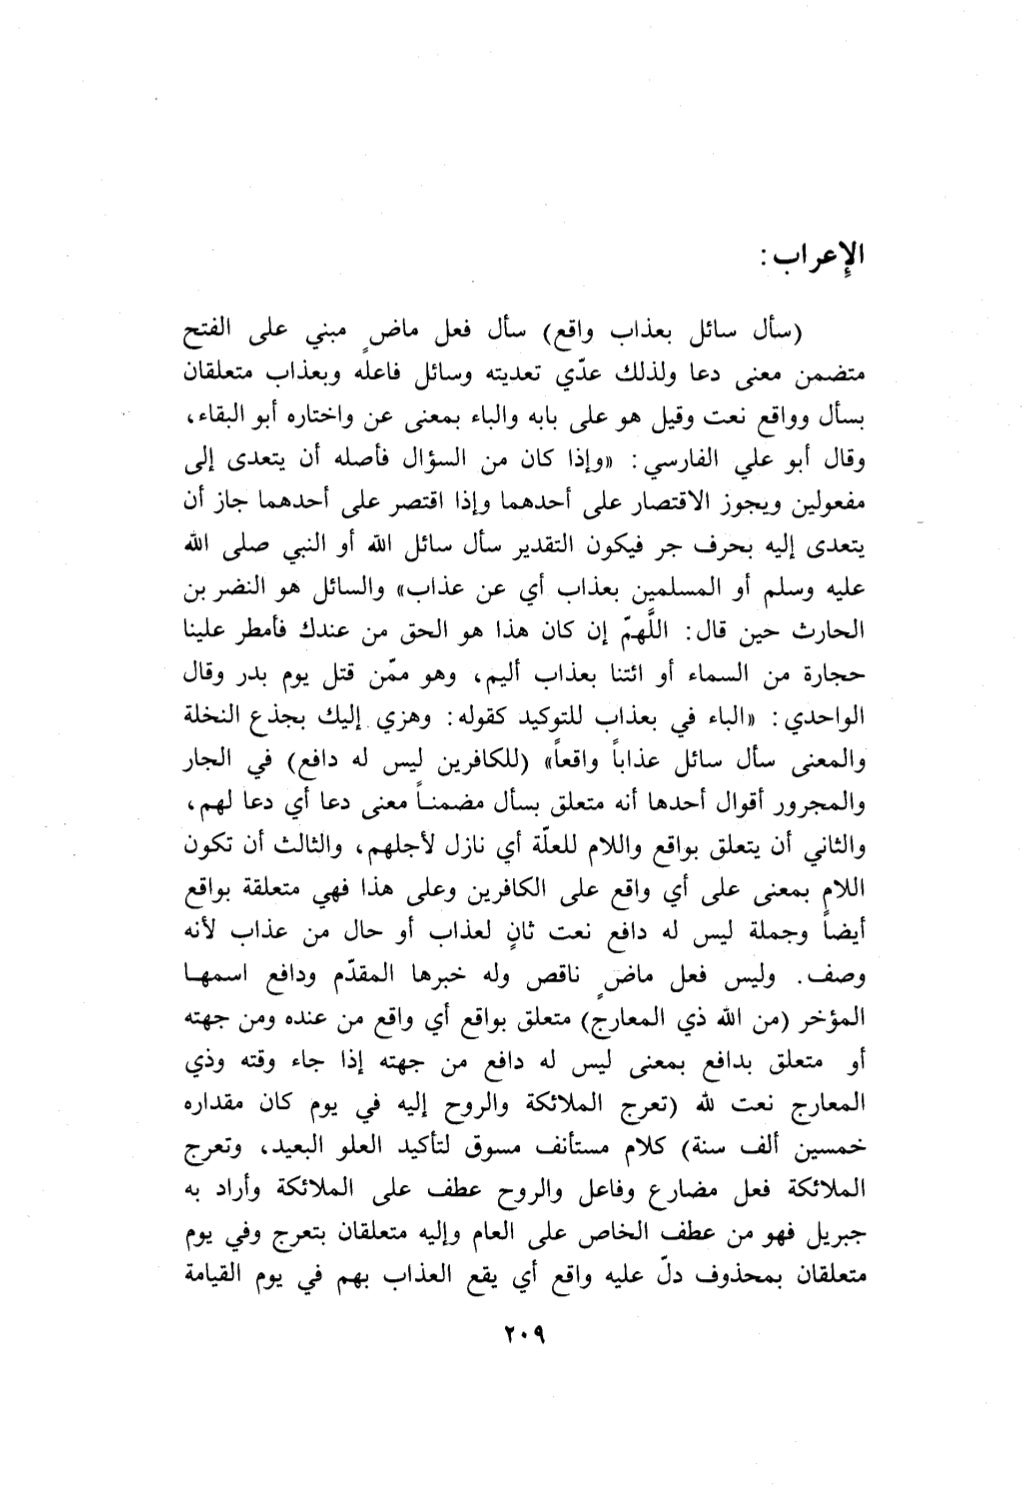 الإعراب :
(سأل سائل بعذاب واقع) سأل فعل ماضٍ مبني على الفتح
متضمن معنى دعا ولذلك عدّي تعديته وسائل فاعله وبعذاب متعلقان
بسأل وواقع نعت وقيل هو على بابه والباء بمعنى عن واختاره أبو البقاء،
وقال أبو علي الفارسي : «وإذا كان من السؤال فأصله أن يتعدى إلى
مفعولين ويجوز الاقتصار على أحدهما وإذا اقتصر على أحدهما جاز أن
يتعدى إليه بحرف جر فيكون التقدير سأل سائل الله أو النبي صلى الله
عليه وسلم أو المسلمين بعذاب أي عن عذاب» والسائل هو النضر بن
الحارث حين قال : اللَّهمّ إن كان هذا هو الحق من عندك فأمطر علينا
حجارة من السماء أو ائتنا بعذاب أليم، وهو ممّن قتل يوم بدر وقال
الواحدي : «الباء في بعذاب للتوكيد كقوله : وهزي إليك بجذع النخلة
والمعنى سأل سائل عذاباً واقعاً» (للكافرين ليس له دافع) في الجار
والمجرور أقوال أحدها أنه متعلق بسأل مضمناً معنى دعا أي دعا لهم،
والثاني أن يتعلق بواقع واللام للعلّة أي نازل لأجلهم، والثالث أن تكون
اللام بمعنى على أي واقع على الكافرين وعلى هذا فهي متعلقة بواقع
أيضاً وجملة ليس له دافع نعت ثانٍ لعذاب أو حال من عذاب لأنه
وصف. وليس فعل ماضٍ ناقص وله خبرها المقدّم ودافع اسمها
المؤخر (من الله ذي المعارج) متعلق بواقع أي واقع من عنده ومن جهته
أو متعلق بدافع بمعنى ليس له دافع من جهته إذا جاء وقته وذي
المعارج نعت لله (تعرج الملائكة والروح إليه في يوم كان مقداره
خمسين ألف سنة) كلام مستأنف مسوق لتأكيد العلو البعيد، وتعرج
الملائكة فعل مضارع وفاعل والروح عطف على الملائكة وأراد به
جبريل فهو من عطف الخاص على العام وإليه متعلقان بتعرج وفي يوم
متعلقان بمحذوف دلّ عليه واقع أي يقع العذاب بهم في يوم القيامة
٢٠٩